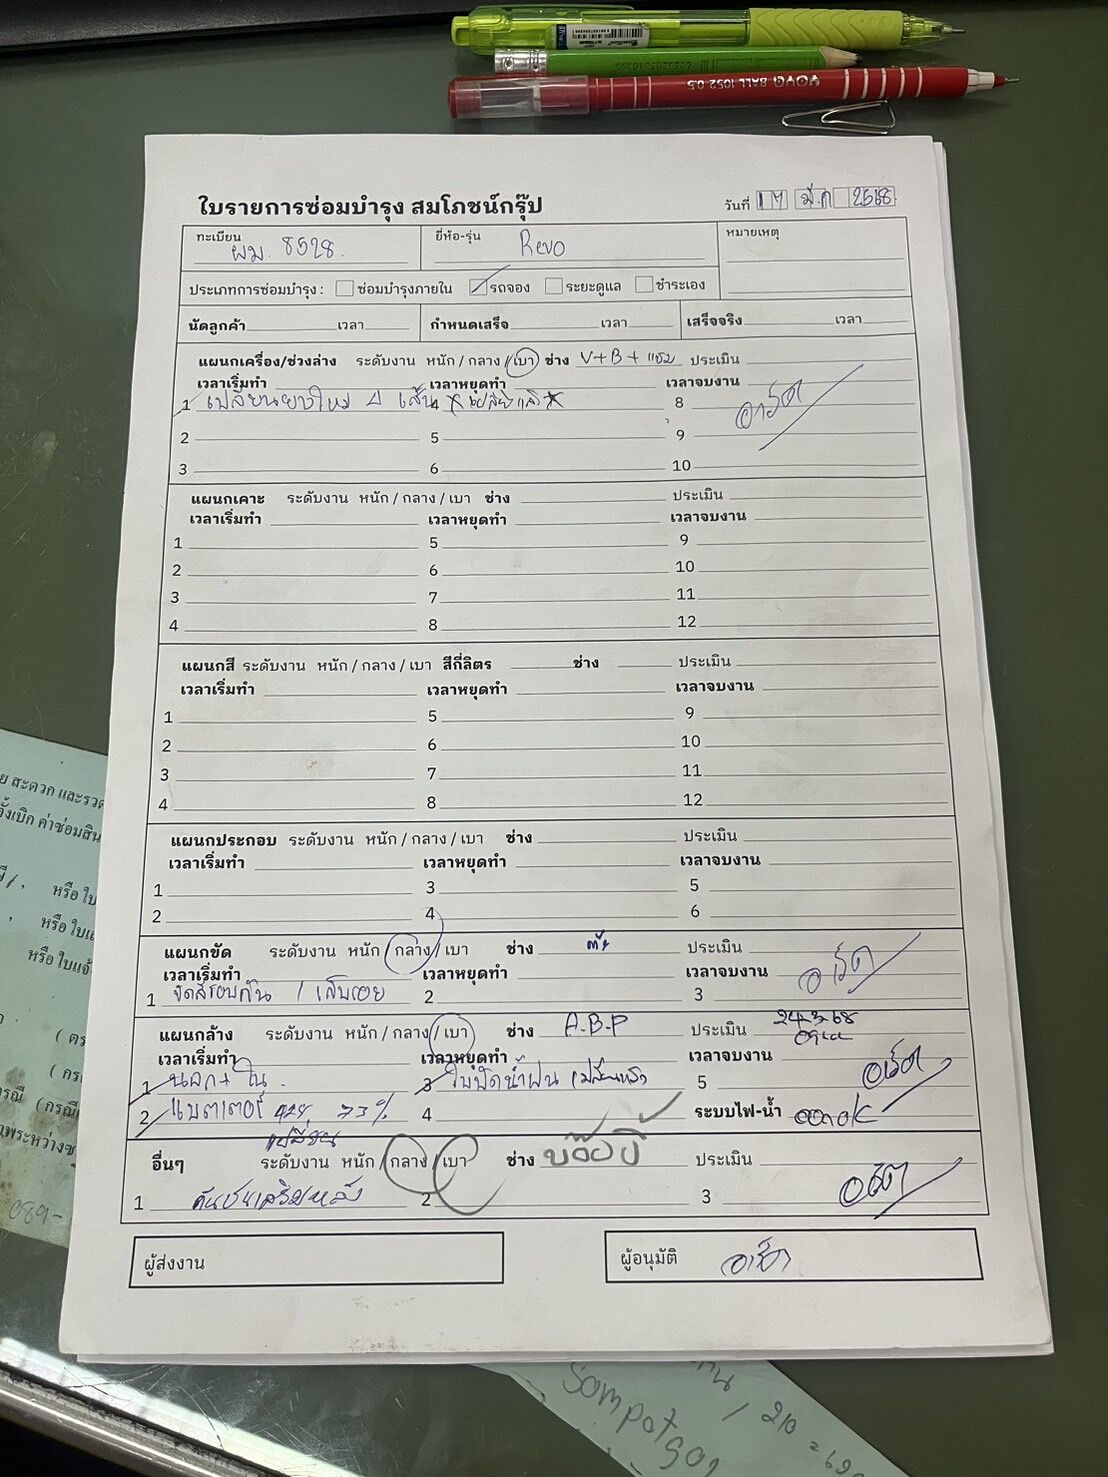 ใบรายการซ่อมบำรุง สมโภชน์กรุ๊ป
วันที่ 17 มี.ค 2568
ทะเบียน ผม. 8528.
ยี่ห้อ-รุ่น Revo
หมายเหตุ
ประเภทการซ่อมบำรุง : ซ่อมบำรุงภายใน รถจอง ระยะดูแล ชำระเอง
นัดลูกค้า เวลา กำหนดเสร็จ เวลา เสร็จจริง เวลา
แผนกเครื่อง/ช่วงล่าง ระดับงาน หนัก / กลาง / เบา ช่าง V+B+แชม ประเมิน
เวลาเริ่มทำ เวลาหยุดทำ เวลาจบงาน
1 เปลี่ยนยางใหม่ 4 เส้น 4 เปลี่ยนแล้ว 8 อาร์ต
2 5 9
3 6 10
แผนกเคาะ ระดับงาน หนัก / กลาง / เบา ช่าง ประเมิน
เวลาเริ่มทำ เวลาหยุดทำ เวลาจบงาน
1 5 9
2 6 10
3 7 11
4 8 12
แผนกสี ระดับงาน หนัก / กลาง / เบา สีกี่ลิตร ช่าง ประเมิน
เวลาเริ่มทำ เวลาหยุดทำ เวลาจบงาน
1 5 9
2 6 10
3 7 11
4 8 12
แผนกประกอบ ระดับงาน หนัก / กลาง / เบา ช่าง ประเมิน
เวลาเริ่มทำ เวลาหยุดทำ เวลาจบงาน
1 3 5
2 4 6
แผนกขัด ระดับงาน หนัก / กลาง / เบา ช่าง ประเมิน
เวลาเริ่มทำ เวลาหยุดทำ เวลาจบงาน อาร์ต
1 ขัดสีรอบคัน / เก็บรอย 2 3
แผนกล้าง ระดับงาน หนัก / กลาง / เบา ช่าง A-B-P ประเมิน 24-3-68
เวลาเริ่มทำ เวลาหยุดทำ เวลาจบงาน
1 นอก + ใน. 3 ใบปัดน้ำฝน เปลี่ยนแล้ว 5 อาร์ต
2 แบตเตอรี่ 73% 4 ระบบไฟ-น้ำ ok
เปลี่ยน
อื่นๆ ระดับงาน หนัก / กลาง / เบา ช่าง ประเมิน
1 กันชนเสริมหลัง 2 3 อาร์ต
ผู้ส่งงาน
ผู้อนุมัติ อาร์ต
ย สะดวก และรวด
หรือ ใบ
หรือ ใบแ
หรือ ใบแจ้
( ตร
( กร
089-
210 = 690
Sompotgo